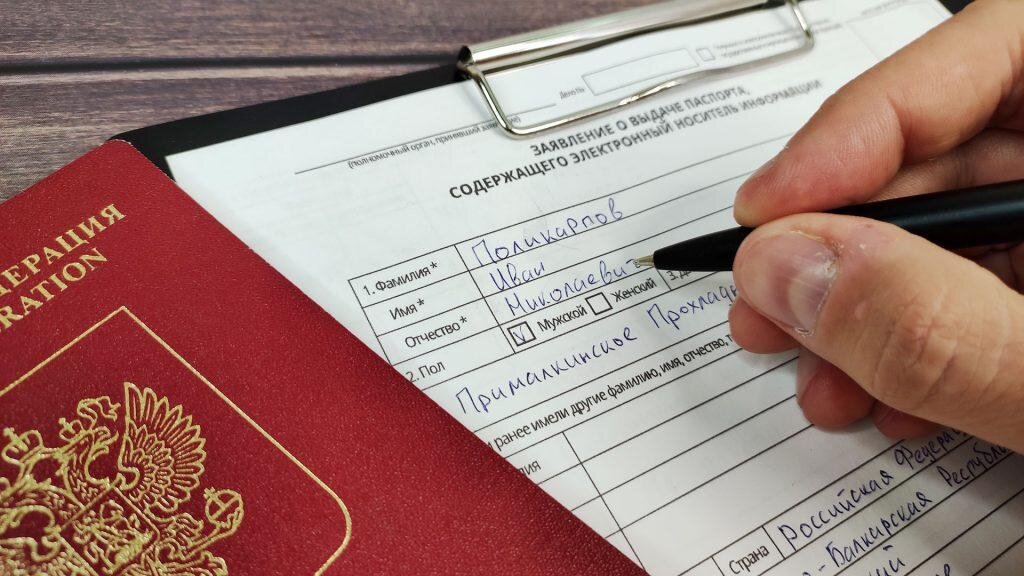 День
(полномочный орган, принявший
ЗАЯВЛЕНИЕ О ВЫДАЧЕ ПАСПОРТА,
СОДЕРЖАЩЕГО ЭЛЕКТРОННЫЙ НОСИТЕЛЬ ИНФОРМАЦИИ
1. Фамилия* Поликарпов
Имя* Иван
Отчество* Миколаевич
2. Пол V Мужской Женский 3.
Прималкинское Прохладн
и ранее имели другие фамилию, имя, отчество,
лия
Страна Российская Федера
о-Балкарская Республи
ЕРАЦИЯ
RATION